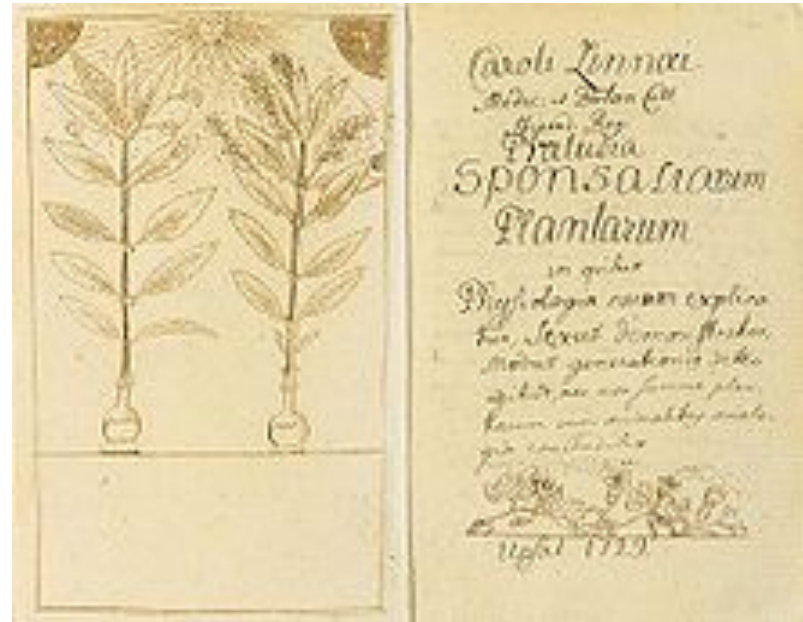 Caroli Linnæi
Medic: et Botan Cult
Stipend: Reg
Præludia
Sponsaliarum
Plantarum
in quibus
Physiologia earum explica
tur, Sexus demonstratur
Modus generationis dete
gitur, nec non summa plan
tarum cum animalibus analo
gia concluditur
Upsal 1729